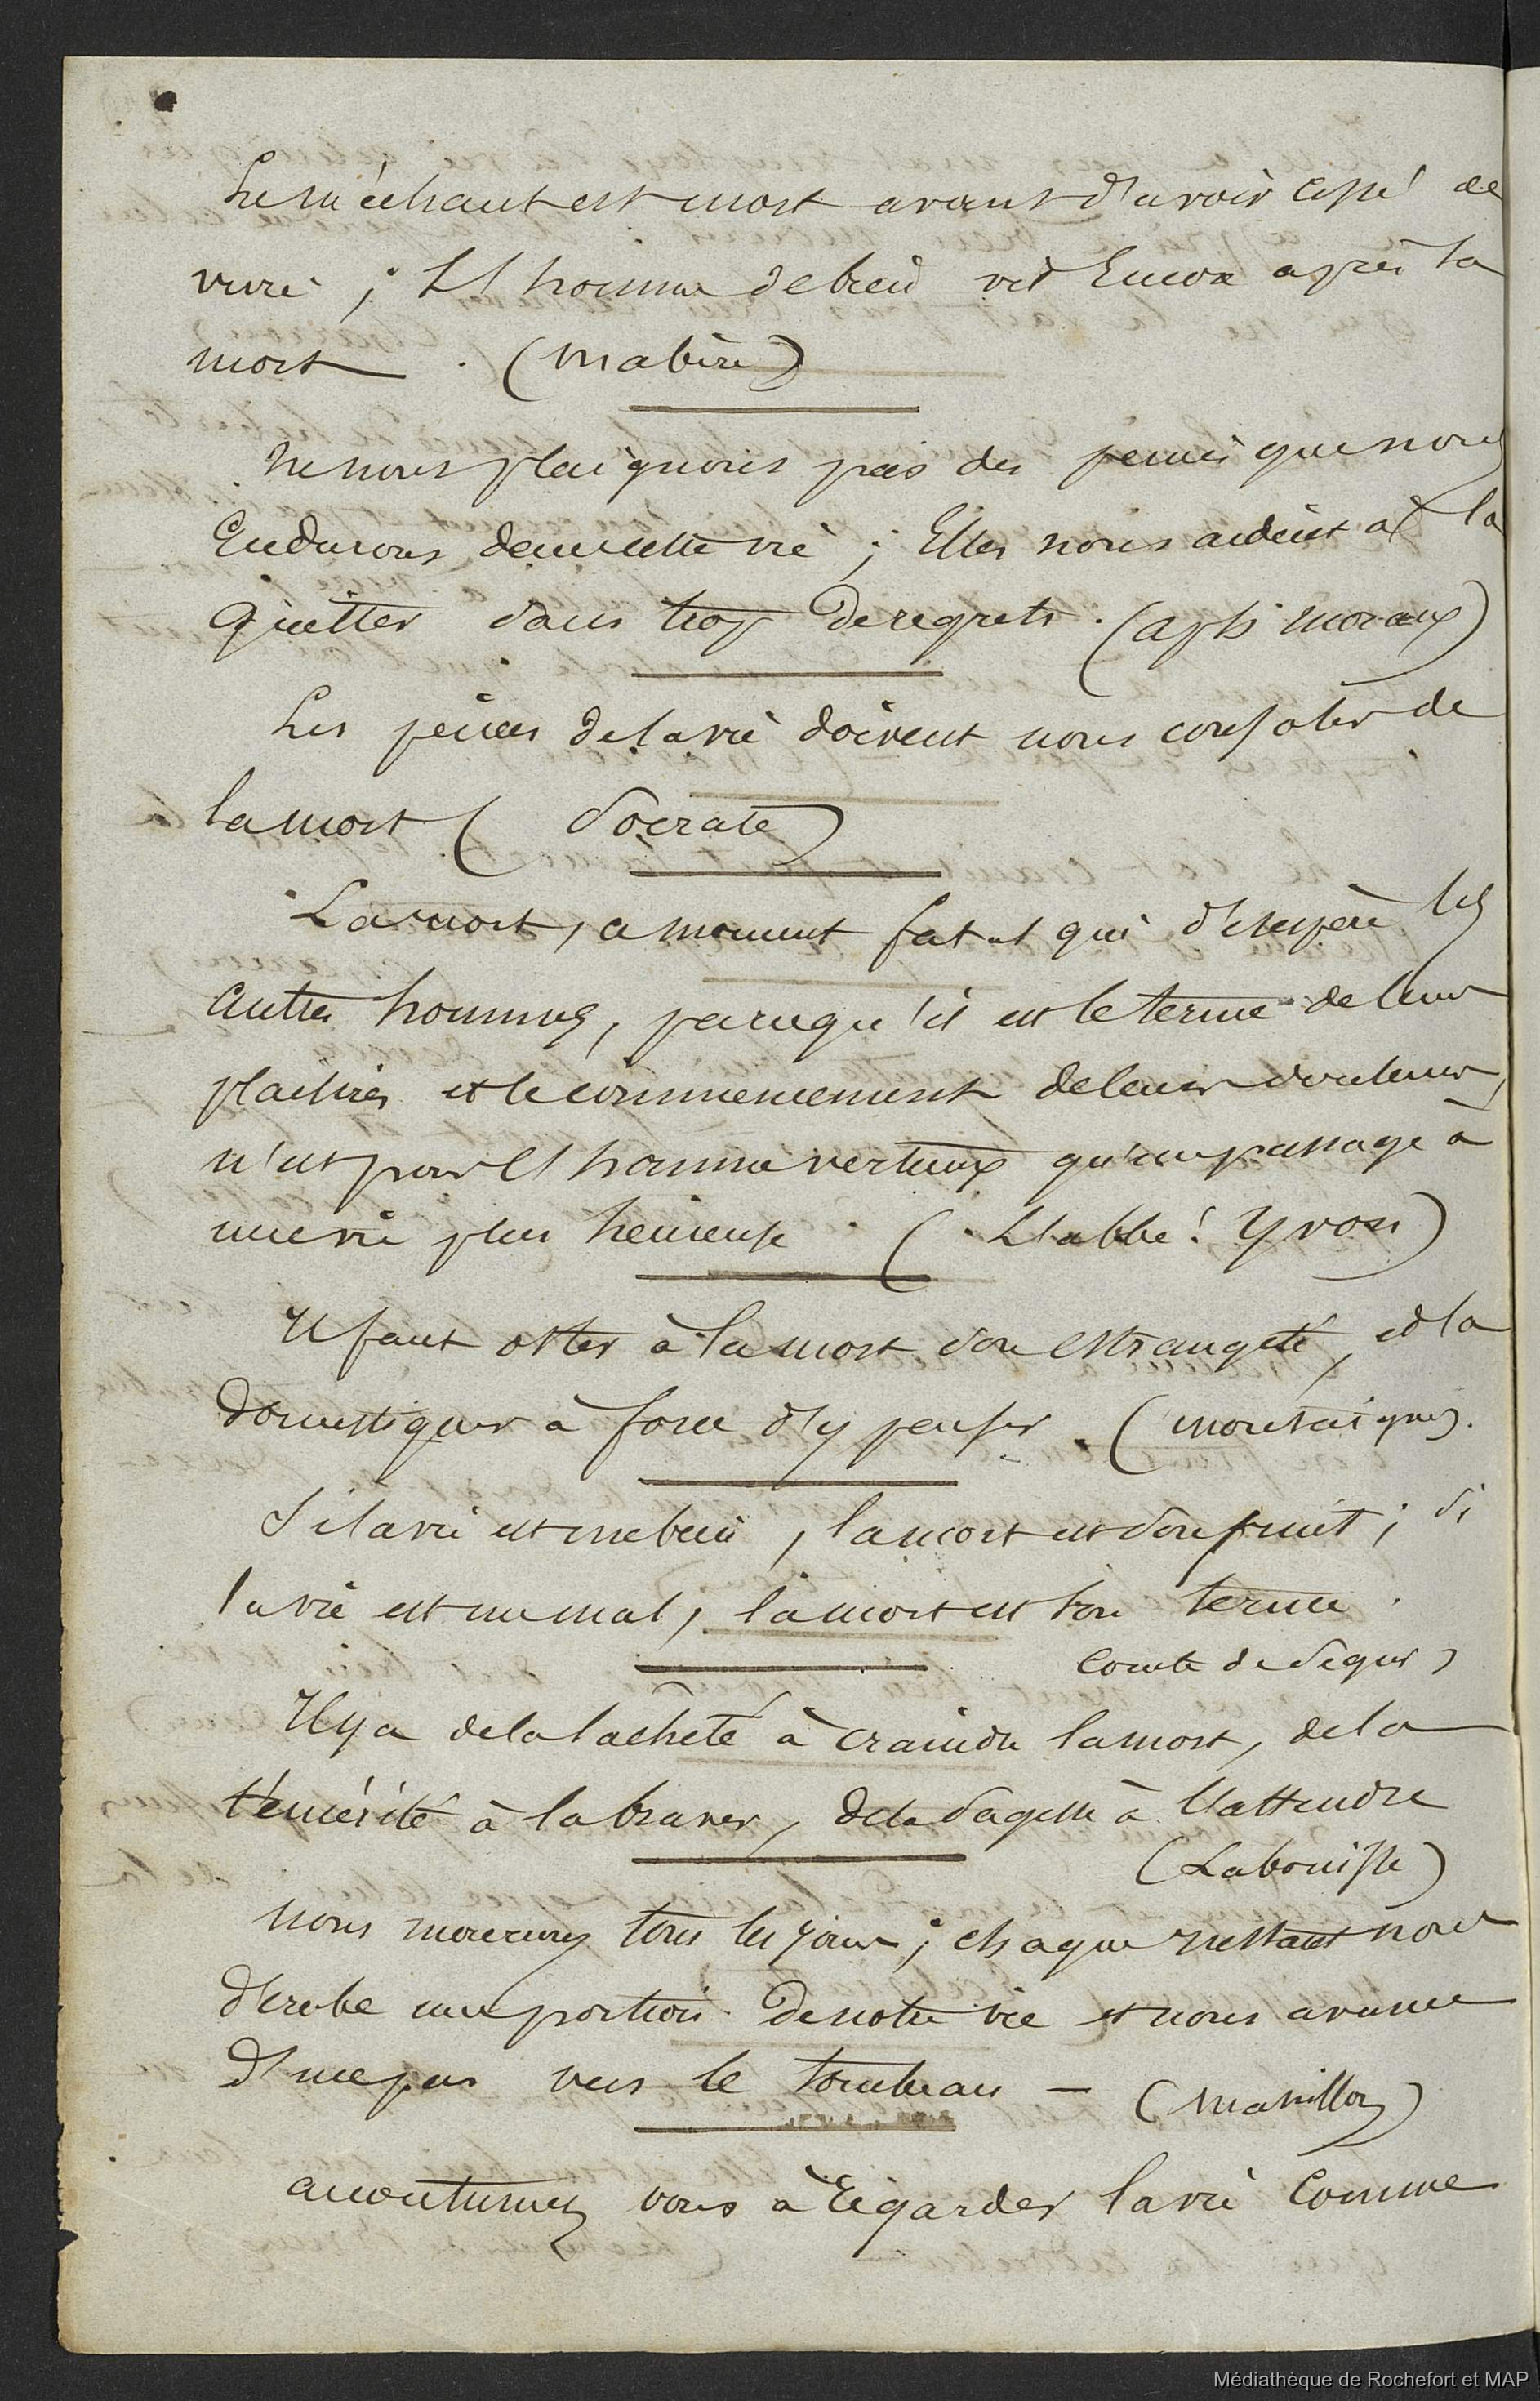 Le méchant est mort avant d'avoir cessé de
vivre ; L'homme de bien vit Encore après la
mort . (Mabire)
Ne nous plaignons pas des peines que nous
Endurons dans cette vie ; Elles nous aident à la
quitter sans trop de regrets. (aphs moraux)
Les peines de la vie doivent nous consoler de
la mort ( Socrate)
La mort, ce moment fatal qui désespère les
autres hommes, parcequ'il est le terme de leurs
plaisirs et le commencement de leurs douleurs,
n'est pour l'homme vertueux qu'un passage à
une vie plus heureuse . ( L'abbé Yvon)
Il faut oster à la mort son estrangeté, et la
domestiquer à force d'y penser . (montaigne).
Si la vie est un bien , la mort est son fruit ; si
la vie est un mal, la mort est son terme .
Comte de Segur)
Il y a de la lâcheté à craindre la mort, de la
témérité à la braver, de la sagesse à l'attendre
(Labouisse)
nous mourons tous les jours ; chaque instant nous
dérobe une portion de notre vie et nous avance
d'un pas vers le tombeau - (Massillon)
accoutumez vous à regarder la vie comme
Médiathèque de Rochefort et MAP